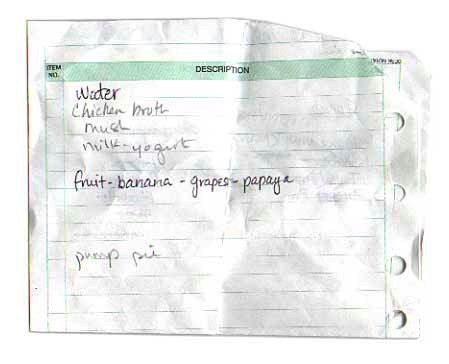 ITEM NO.
DESCRIPTION
Water
Chicken broth
mush
milk-yogurt
fruit-banana-grapes-papaya
pump pie